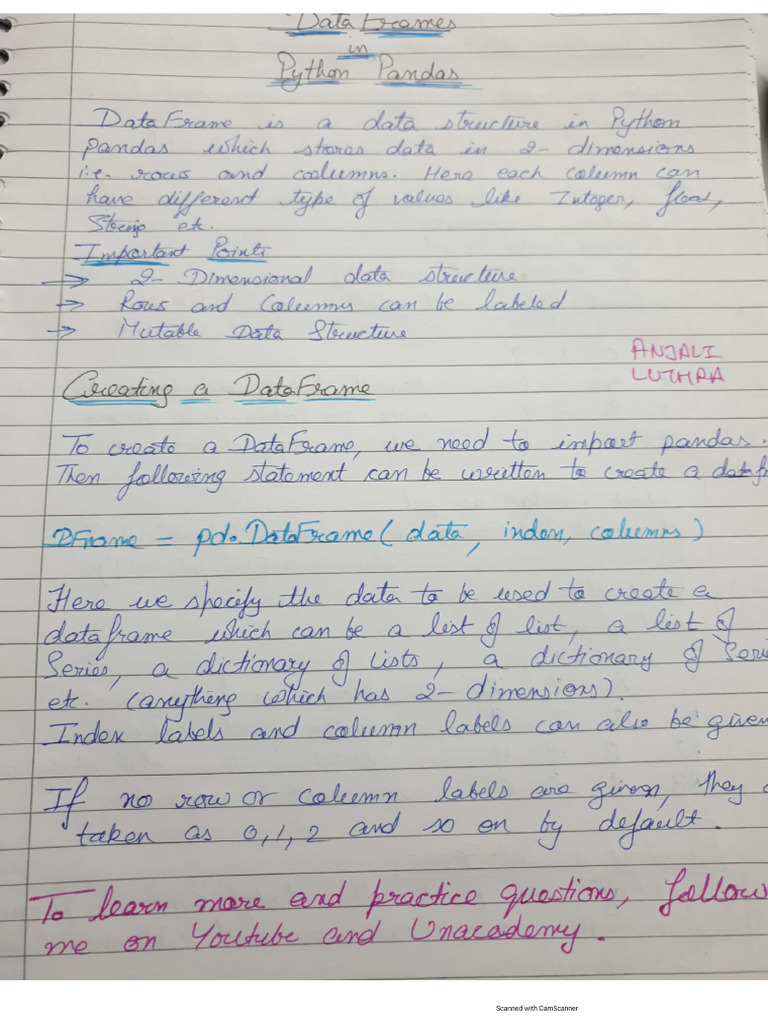 DataFrames
in
Python Pandas
DataFrame is a data structure in Python
pandas which stores data in 2-dimensions
i.e. rows and columns. Here each column can
have different type of values like Integer, float,
String etc.
Important Points
→ 2-Dimensional data structure
→ Rows and Columns can be labeled
→ Mutable Data Structure
ANJALI
LUTHRA
Creating a DataFrame
To create a DataFrame, we need to import pandas.
Then following statement can be written to create a dataf
DFrame = pd.DataFrame(data, index, columns)
Here we specify the data to be used to create a
dataframe which can be a list of list, a list of
Series, a dictionary of lists, a dictionary of Serie
etc. (anything which has 2-dimensions).
Index labels and column labels can also be given
If no row or column labels are given, they a
taken as 0,1,2 and so on by default.
To learn more and practice questions, follow
me on Youtube and Unacademy.
Scanned with CamScanner